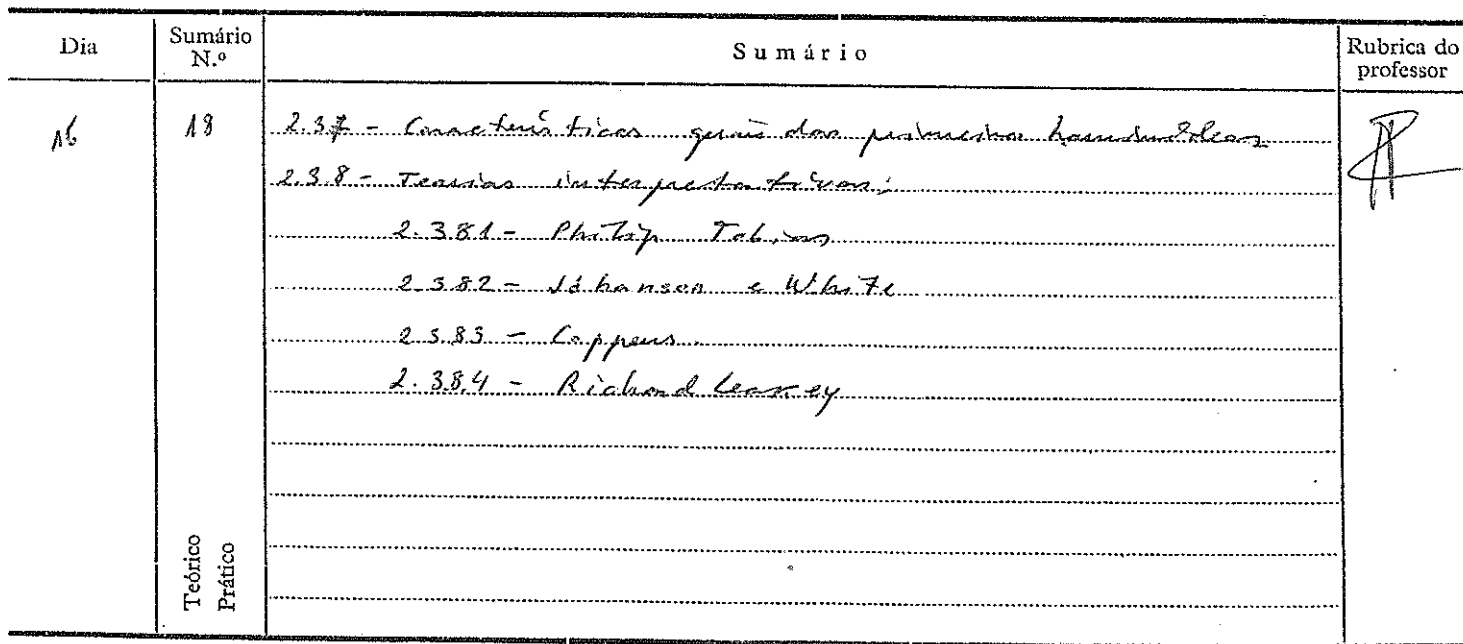 Dia
Sumário N.º
Sumário
Rubrica do professor
16
18
2.3.7 - Características gerais dos primeiros
2.3.8 - Teorias interpretativas:
2.381 - Philip Tobias
2.382 - Johanson e White
2.3.83 - Coppens
2.3.8.4 - Richard Leakey
Teórico
Prático